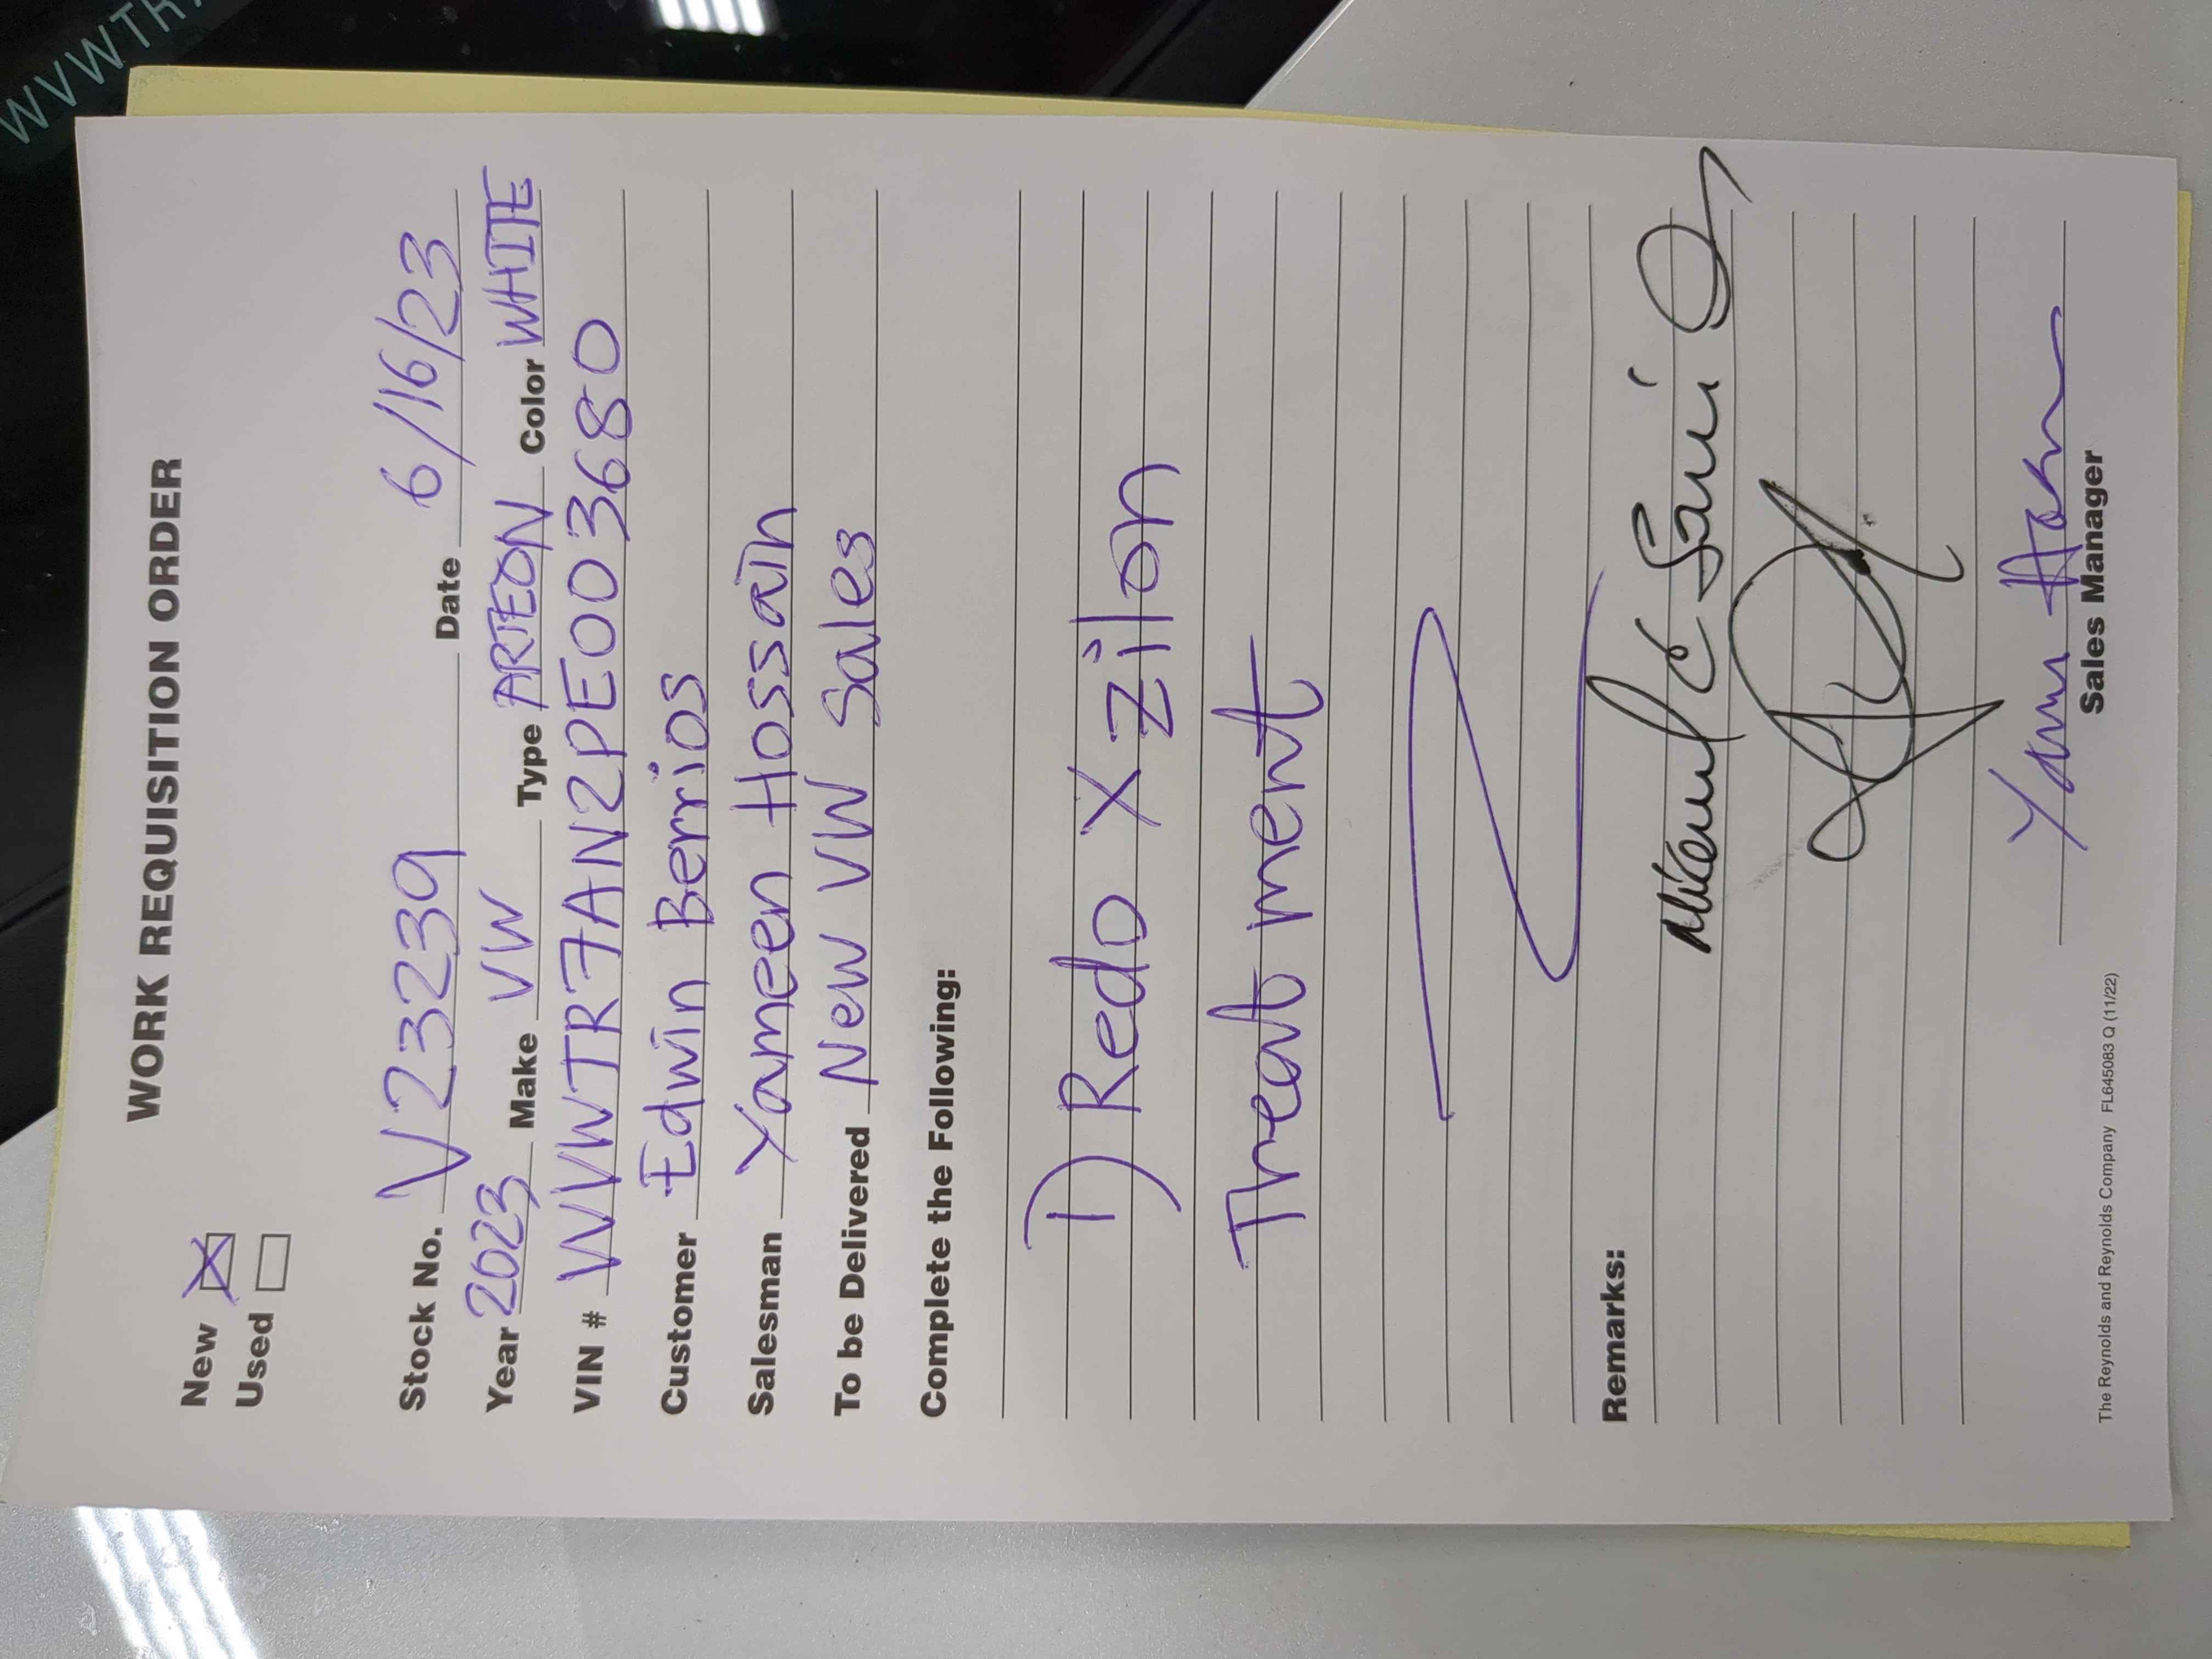 WVWTR
WORK REQUISITION ORDER
New
Used
Stock No. V23239 Date 6/16/23
Year 2023 Make VW Type ARTEON Color WHITE
VIN # WVWTR7AN2PE003680
Customer Edwin Berrios
Salesman Yameen Hossain
To be Delivered New VW Sales
Complete the Following:
1) Redo Xzilon
Treatment
Remarks:
Sales Manager
The Reynolds and Reynolds Company FL645083 Q (11/22)